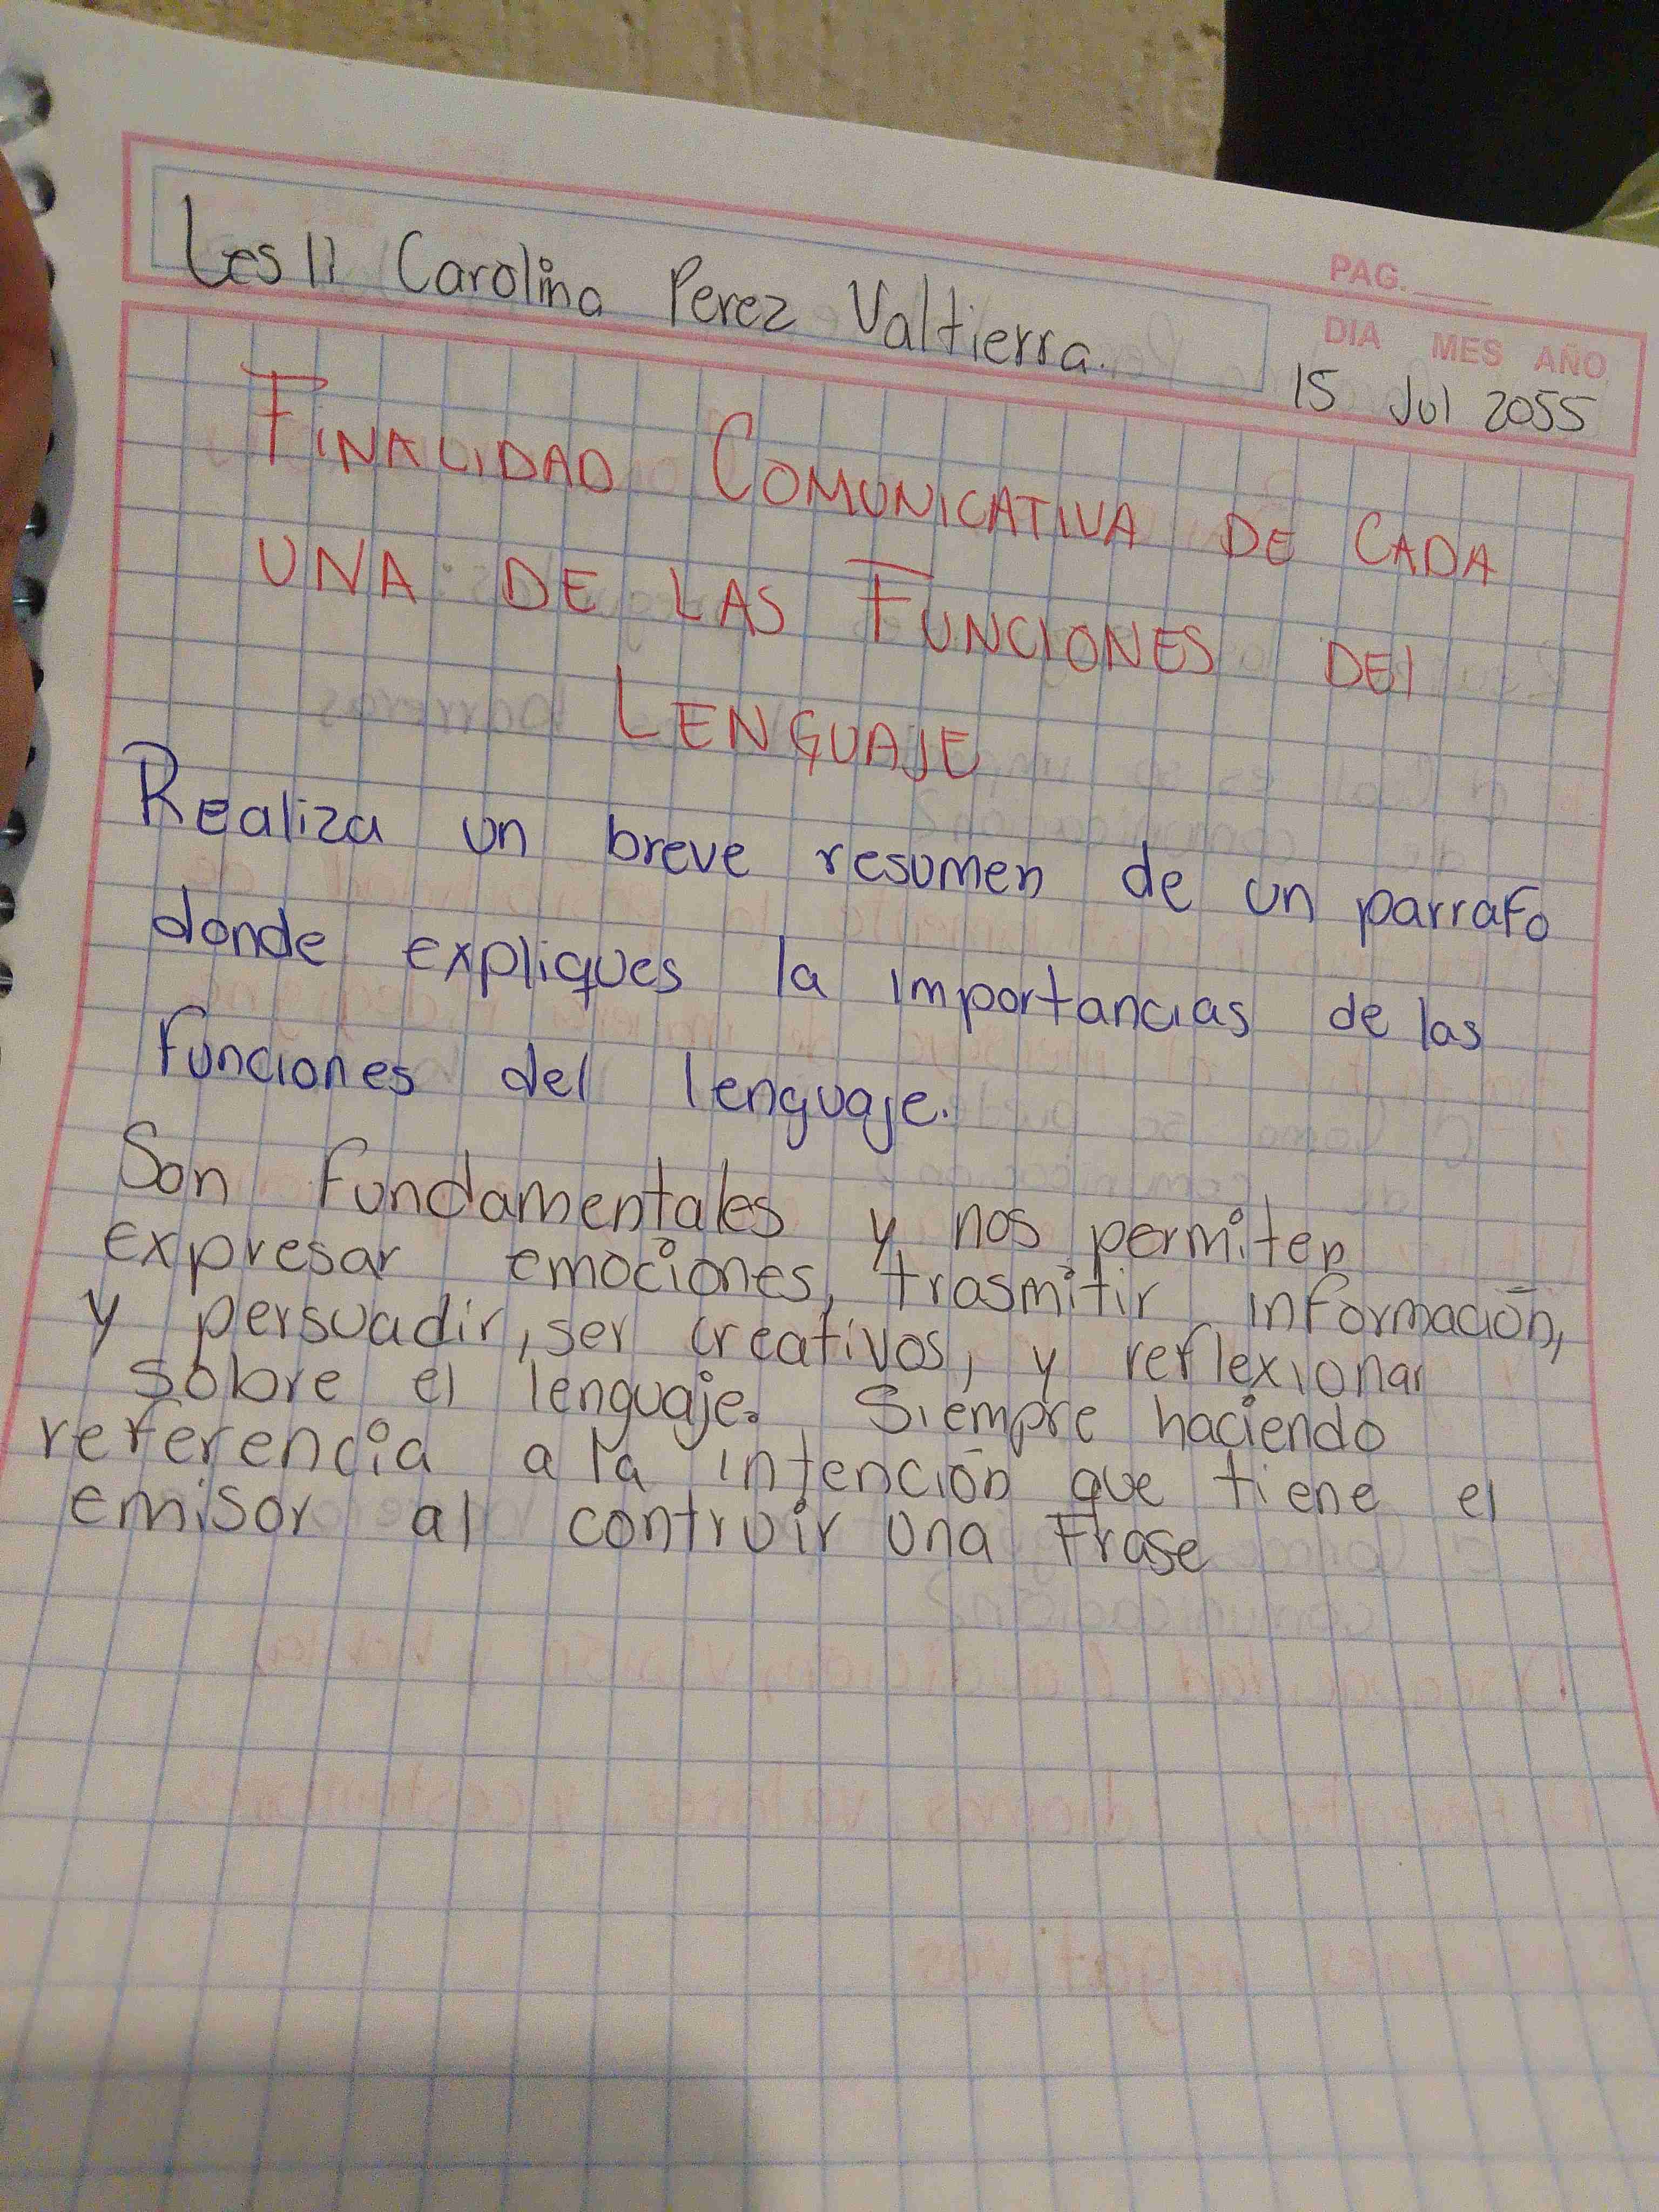 Lesli Carolina Perez Valtierra.
PAG.
DIA MES AÑO
15 Jul 2055
FINALIDAD COMUNICATIVA DE CADA
UNA DE LAS FUNCIONES DEl
LENGUAJE
Realiza un breve resumen de un parrafo
donde expliques la importancias de las
funciones del lenguaje.
Son fundamentales y nos permiten
expresar emociones, trasmitir información,
y persuadir, ser creativos, y reflexionar
sobre el lenguaje. Siempre haciendo
referencia a la intención que tiene el
emisor al contruir una frase